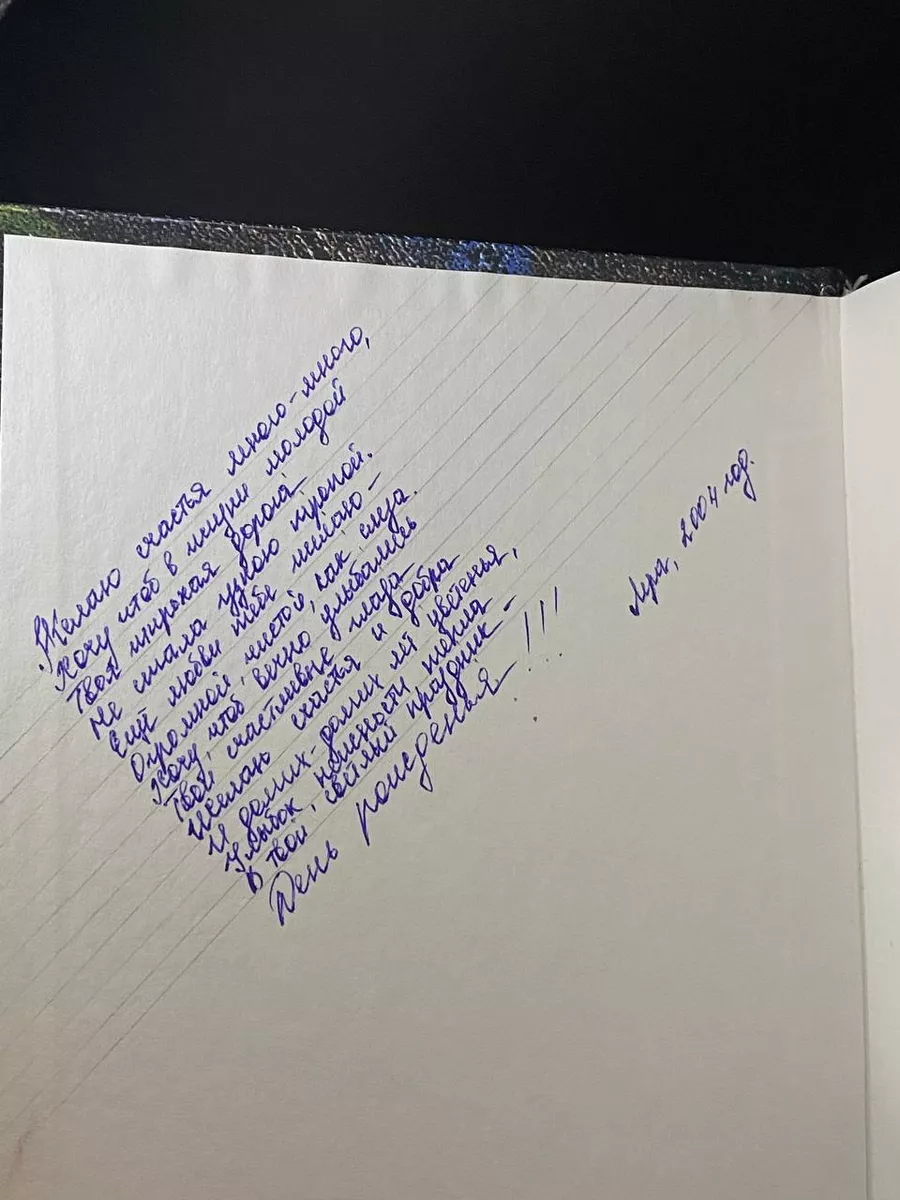 Желаю счастья много-много,
Хочу чтоб в жизни молодой
Твоя широкая дорога
Не стала узкою тропой.
Ещё любви тебе желаю –
Огромной, чистой, как слеза.
Хочу, чтоб вечно улыбались
Твои счастливые глаза
Желаю счастья и добра
И долгих-долгих лет цветенья,
Улыбок, нежности, тепла
В твой, светлый праздник –
День рожденья!!!
2004 год.